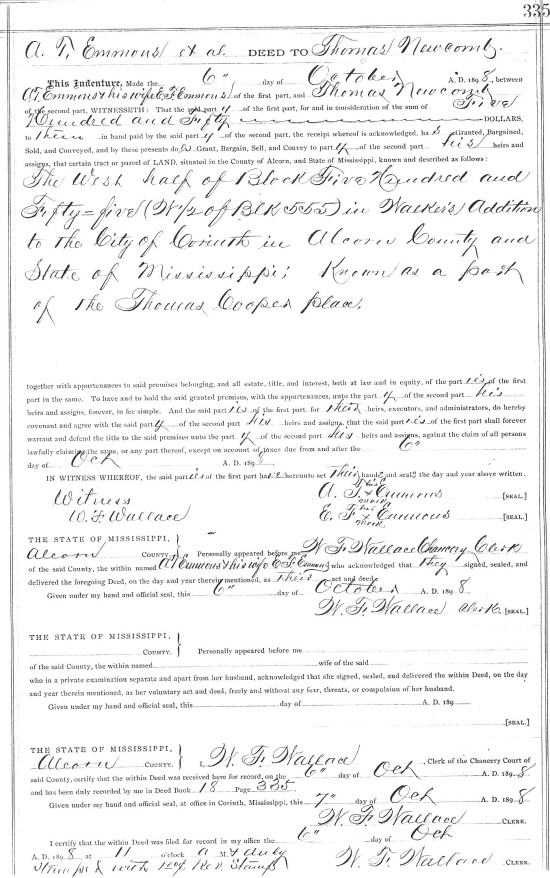 335
A. T. Emmons et al. DEED TO Thomas Newcomb.
This Indenture, Made the 6" day of October A. D. 1898, between
A T Emmons & his wife E F Emmons of the first part, and Thomas Newcomb
of the second part, WITNESSETH: That the said part y of the first part, for and in consideration of the sum of Five
Hundred and Fifty DOLLARS,
to them in hand paid by the said part y of the second part, the receipt whereof is acknowledged, ha s Granted, Bargained,
Sold, and Conveyed, and by these presents do Grant, Bargain, Sell, and Convey to part y of the second part his heirs and
assigns, that certain tract or parcel of LAND, situated in the County of Alcorn, and State of Mississippi, known and described as follows:
The West half of Block Five Hundred and
Fifty=five (W 1/2 of Blk 555) in Walker's Addition
to the City of Corinth in Alcorn County and
State of Mississippi; Known as a part
of the Thomas Cooper place.
together with appurtenances to said premises belonging, and all estate, title, and interest, both at law and in equity, of the part ies of the first
part in the same. To have and to hold the said granted premises, with the appurtenances, unto the part y of the second part his
heirs and assigns, forever, in fee simple. And the said part ies of the first part, for their heirs, executors, and administrators, do hereby
covenant and agree with the said part y of the second part his heirs and assigns, that the said part ies of the first part shall forever
warrant and defend the title to the said premises unto the part y of the second part his heirs and assigns, against the claim of all persons
lawfully claiming the same, or any part thereof, except on account of taxes due from and after the 6"
day of Oct A. D. 1898.
IN WITNESS WHEREOF, the said part ies of the first part ha ve hereunto set their hand s and seal s the day and year above written.
Witness A. T. his x mark Emmons [SEAL.]
W. F Wallace E. F. her x mark Emmons [SEAL.]
THE STATE OF MISSISSIPPI,
Alcorn COUNTY. Personally appeared before me W F Wallace Chancery Clerk
of the said County, the within named A T Emmons & his wife E F Emmons who acknowledged that they signed, sealed, and
delivered the foregoing Deed, on the day and year therein mentioned, as their act and deed.
Given under my hand and official seal, this 6" day of October A. D. 1898
W. F. Wallace Clerk [SEAL.]
THE STATE OF MISSISSIPPI,
COUNTY. Personally appeared before me
of the said County, the within named wife of the said
who in a private examination separate and apart from her husband, acknowledged that she signed, sealed, and delivered the within Deed, on the day
and year therein mentioned, as her voluntary act and deed, freely and without any fear, threats, or compulsion of her husband.
Given under my hand and official seal, this day of A. D. 189
[SEAL.]
THE STATE OF MISSISSIPPI,
Alcorn COUNTY. I, W. F. Wallace, Clerk of the Chancery Court of
said County, certify that the within Deed was received here for record, on the 6" day of Oct A. D. 1898
and has been duly recorded by me in Deed Book 18 Page 335
Given under my hand and official seal, at office in Corinth, Mississippi, this 7" day of Oct A. D. 1898
W. F. Wallace CLERK.
I certify that the within Deed was filed for record in my office the 6" day of Oct
A. D. 1898 at 11 o'clock a M. & duly
Stamped with Rev. Stamps W. F. Wallace CLERK.